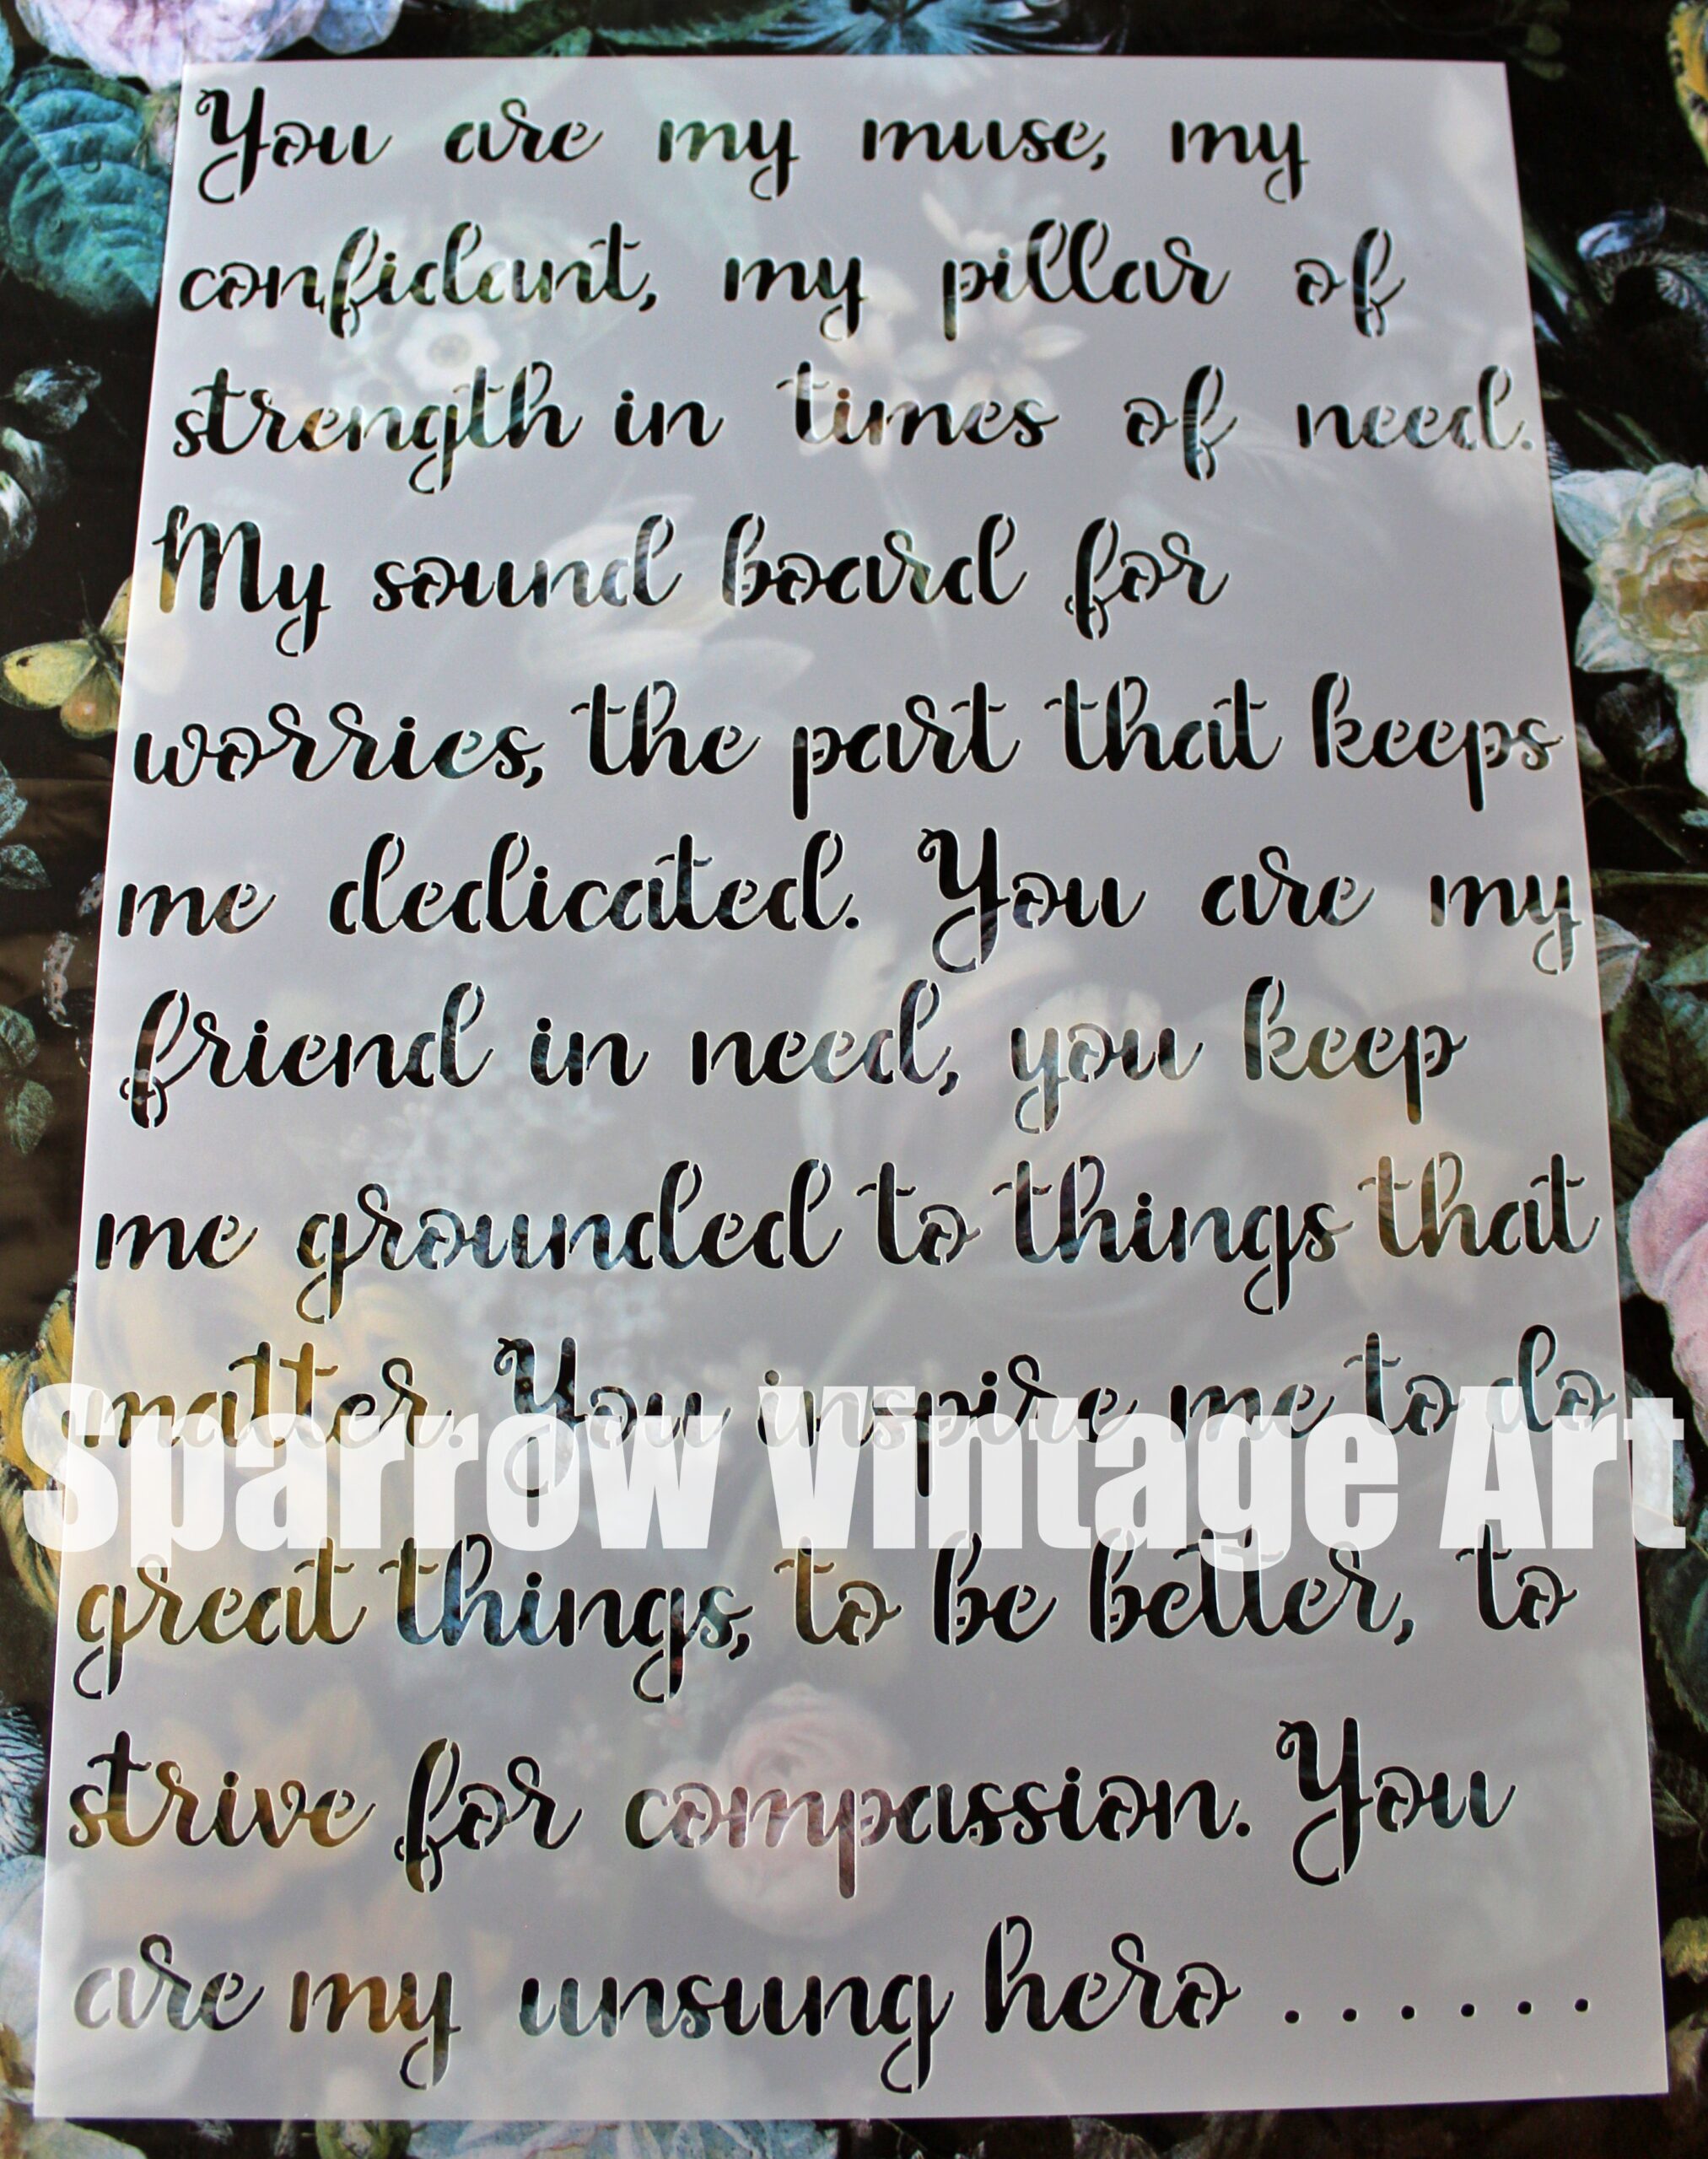 You are my muse, my
confidant, my pillar of
strength in times of need.
My sound board for
worries, the part that keeps
me dedicated. You are my
friend in need, you keep
me grounded to things that
matter. You inspire me to do
Sparrow Vintage Art
great things, to be better, to
strive for compassion. You
are my unsung hero . . . . . .